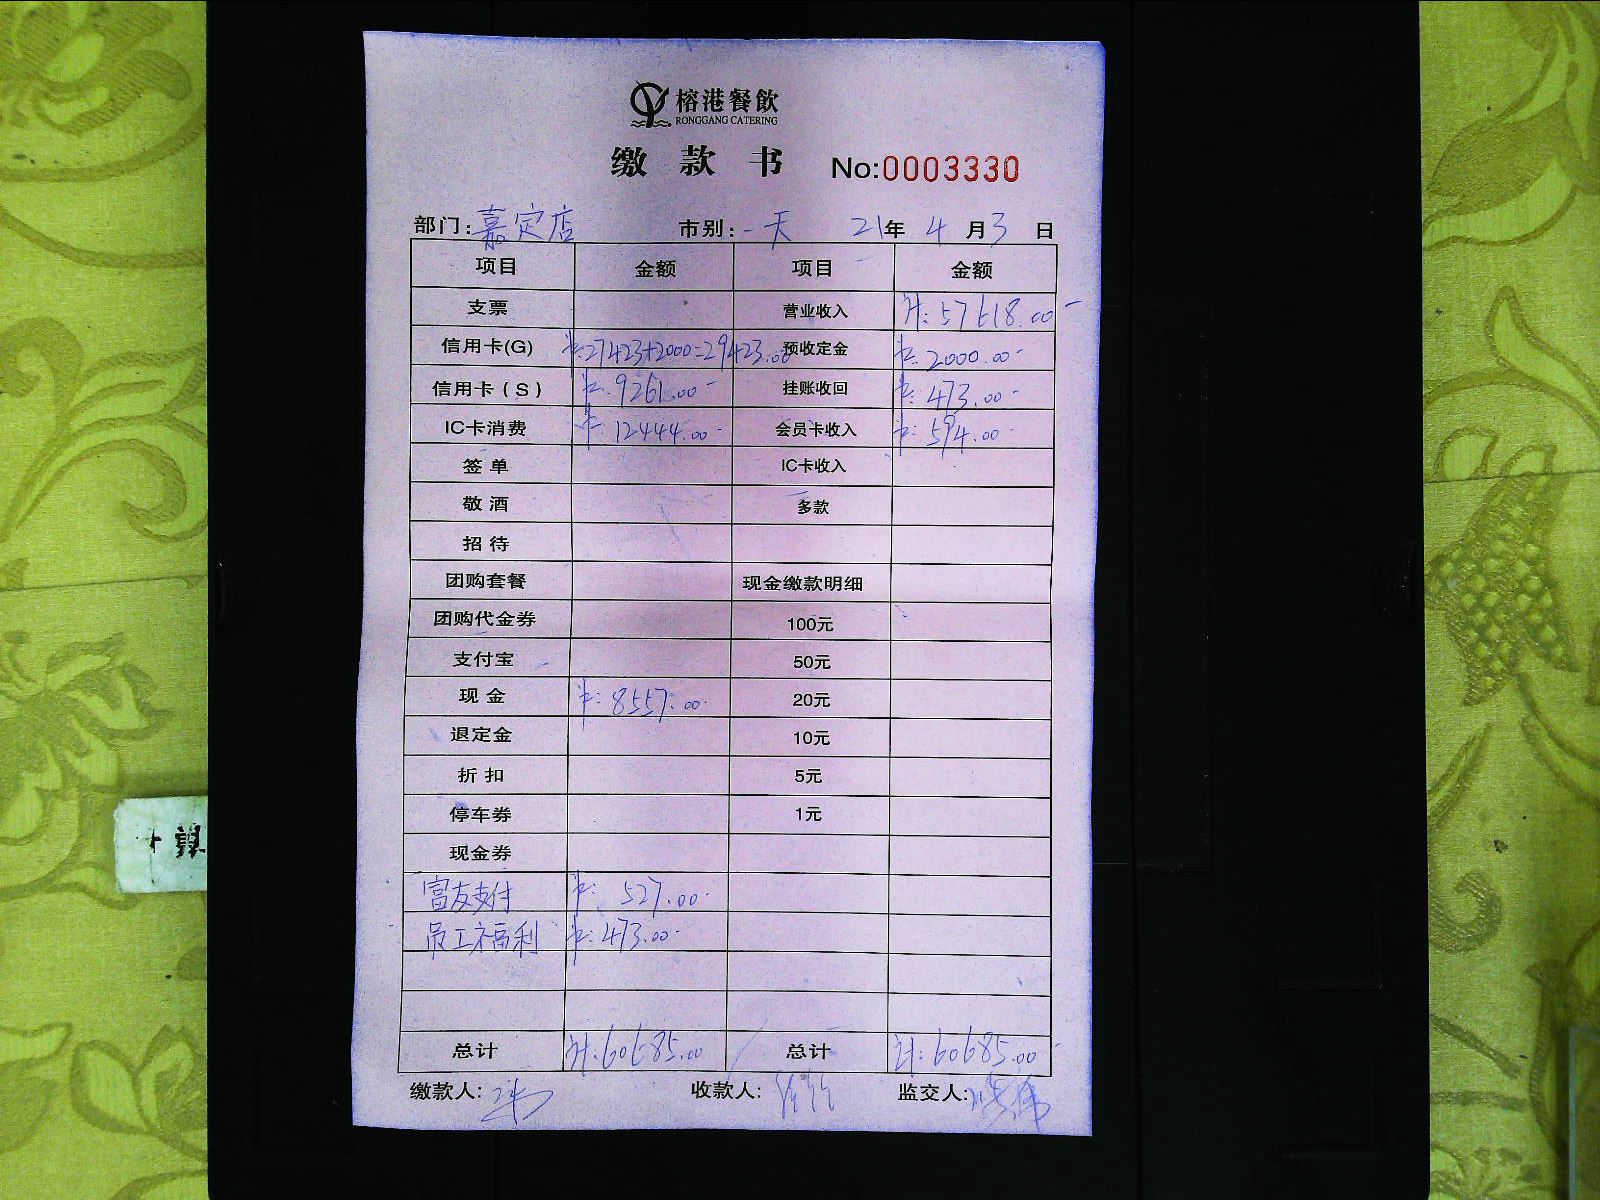 榕港餐飲
RONGGANG CATERING
缴款书 No:0003330
部门:嘉定店 市别:一天 21年4月3日
项目 金额 项目 金额
支票 营业收入 计:57618.00-
信用卡(G) 卡:27423+2000=29423.00 预收定金 卡:2000.00-
信用卡(S) 卡:9261.00- 挂账收回 卡:473.00-
IC卡消费 卡:12444.00- 会员卡收入 卡:594.00-
签单 IC卡收入
敬酒 多款
招待
团购套餐 现金缴款明细
团购代金券 100元
支付宝 50元
现金 卡:8557.00- 20元
退定金 10元
折扣 5元
停车券 1元
现金券
富友支付 卡:527.00-
员工福利 卡:473.00-
总计 计:60685.00 总计 计:60685.00-
缴款人: 收款人: 监交人: